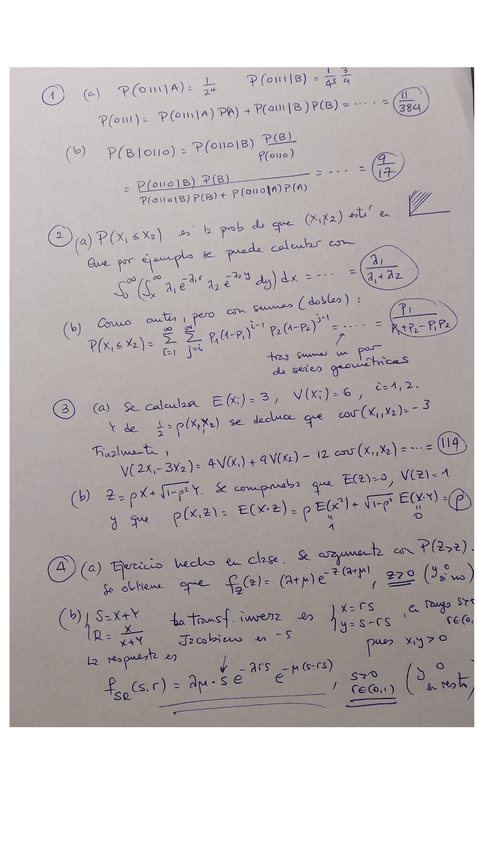 ① (a) P(0111|A) = 1/2⁴ P(0111|B) = 1/4³ 3/4
P(0111) = P(0111|A) P(A) + P(0111|B) P(B) = ···· = 11/384
(b) P(B|0110) = P(0110|B) P(B)/P(0110)
= P(0110|B) P(B) / (P(0110|B) P(B) + P(0110|A) P(A)) = ···· = 9/17
② (a) P(X₁ ≤ X₂) es la prob de que (X₁,X₂) esté en
Que por ejemplo se puede calcular con
∫₀^∞ (∫ₓ^∞ λ₁e^{-λ₁x} λ₂e^{-λ₂y} dy) dx = ···· = λ₁/(λ₁+λ₂)
(b) Como antes, pero con sumas (dobles):
P(X₁ ≤ X₂) = Σ_{i=1}^∞ Σ_{j=i}^∞ P₁(1-P₁)^{i-1} P₂(1-P₂)^{j-1} = ···· = P₁/(P₁+P₂-P₁P₂)
tras sumar un par
de series geométricas
③ (a) Se calculan E(Xᵢ) = 3, V(Xᵢ) = 6, i = 1, 2.
Y de 1/2 = ρ(X₁,X₂) se deduce que cov(X₁,X₂) = -3
Finalmente,
V(2X₁-3X₂) = 4V(X₁) + 9V(X₂) - 12 cov(X₁,X₂) = ···· = 114
(b) Z = ρX + √(1-ρ²) Y. Se comprueba que E(Z) = 0, V(Z) = 1
y que ρ(X,Z) = E(X·Z) = ρ E(X²) + √(1-ρ²) E(X·Y) = ρ
= 1 = 0
④ (a) Ejercicio hecho en clase. Se argumenta con P(Z>z).
Se obtiene que f_Z(z) = (λ+μ) e^{-z(λ+μ)}, z>0 (y 0 si no)
(b) { S = X+Y R = X/(X+Y) la transf. inversa es { x = rs y = s-rs, en rango s>
r∈(0,
Jacobiano es -s pues x,y > 0
La respuesta es
f_{SR}(s,r) = λμ · s e^{-λrs} e^{-μ(s-rs)}, s>0 r∈(0,1) (y 0 en resto